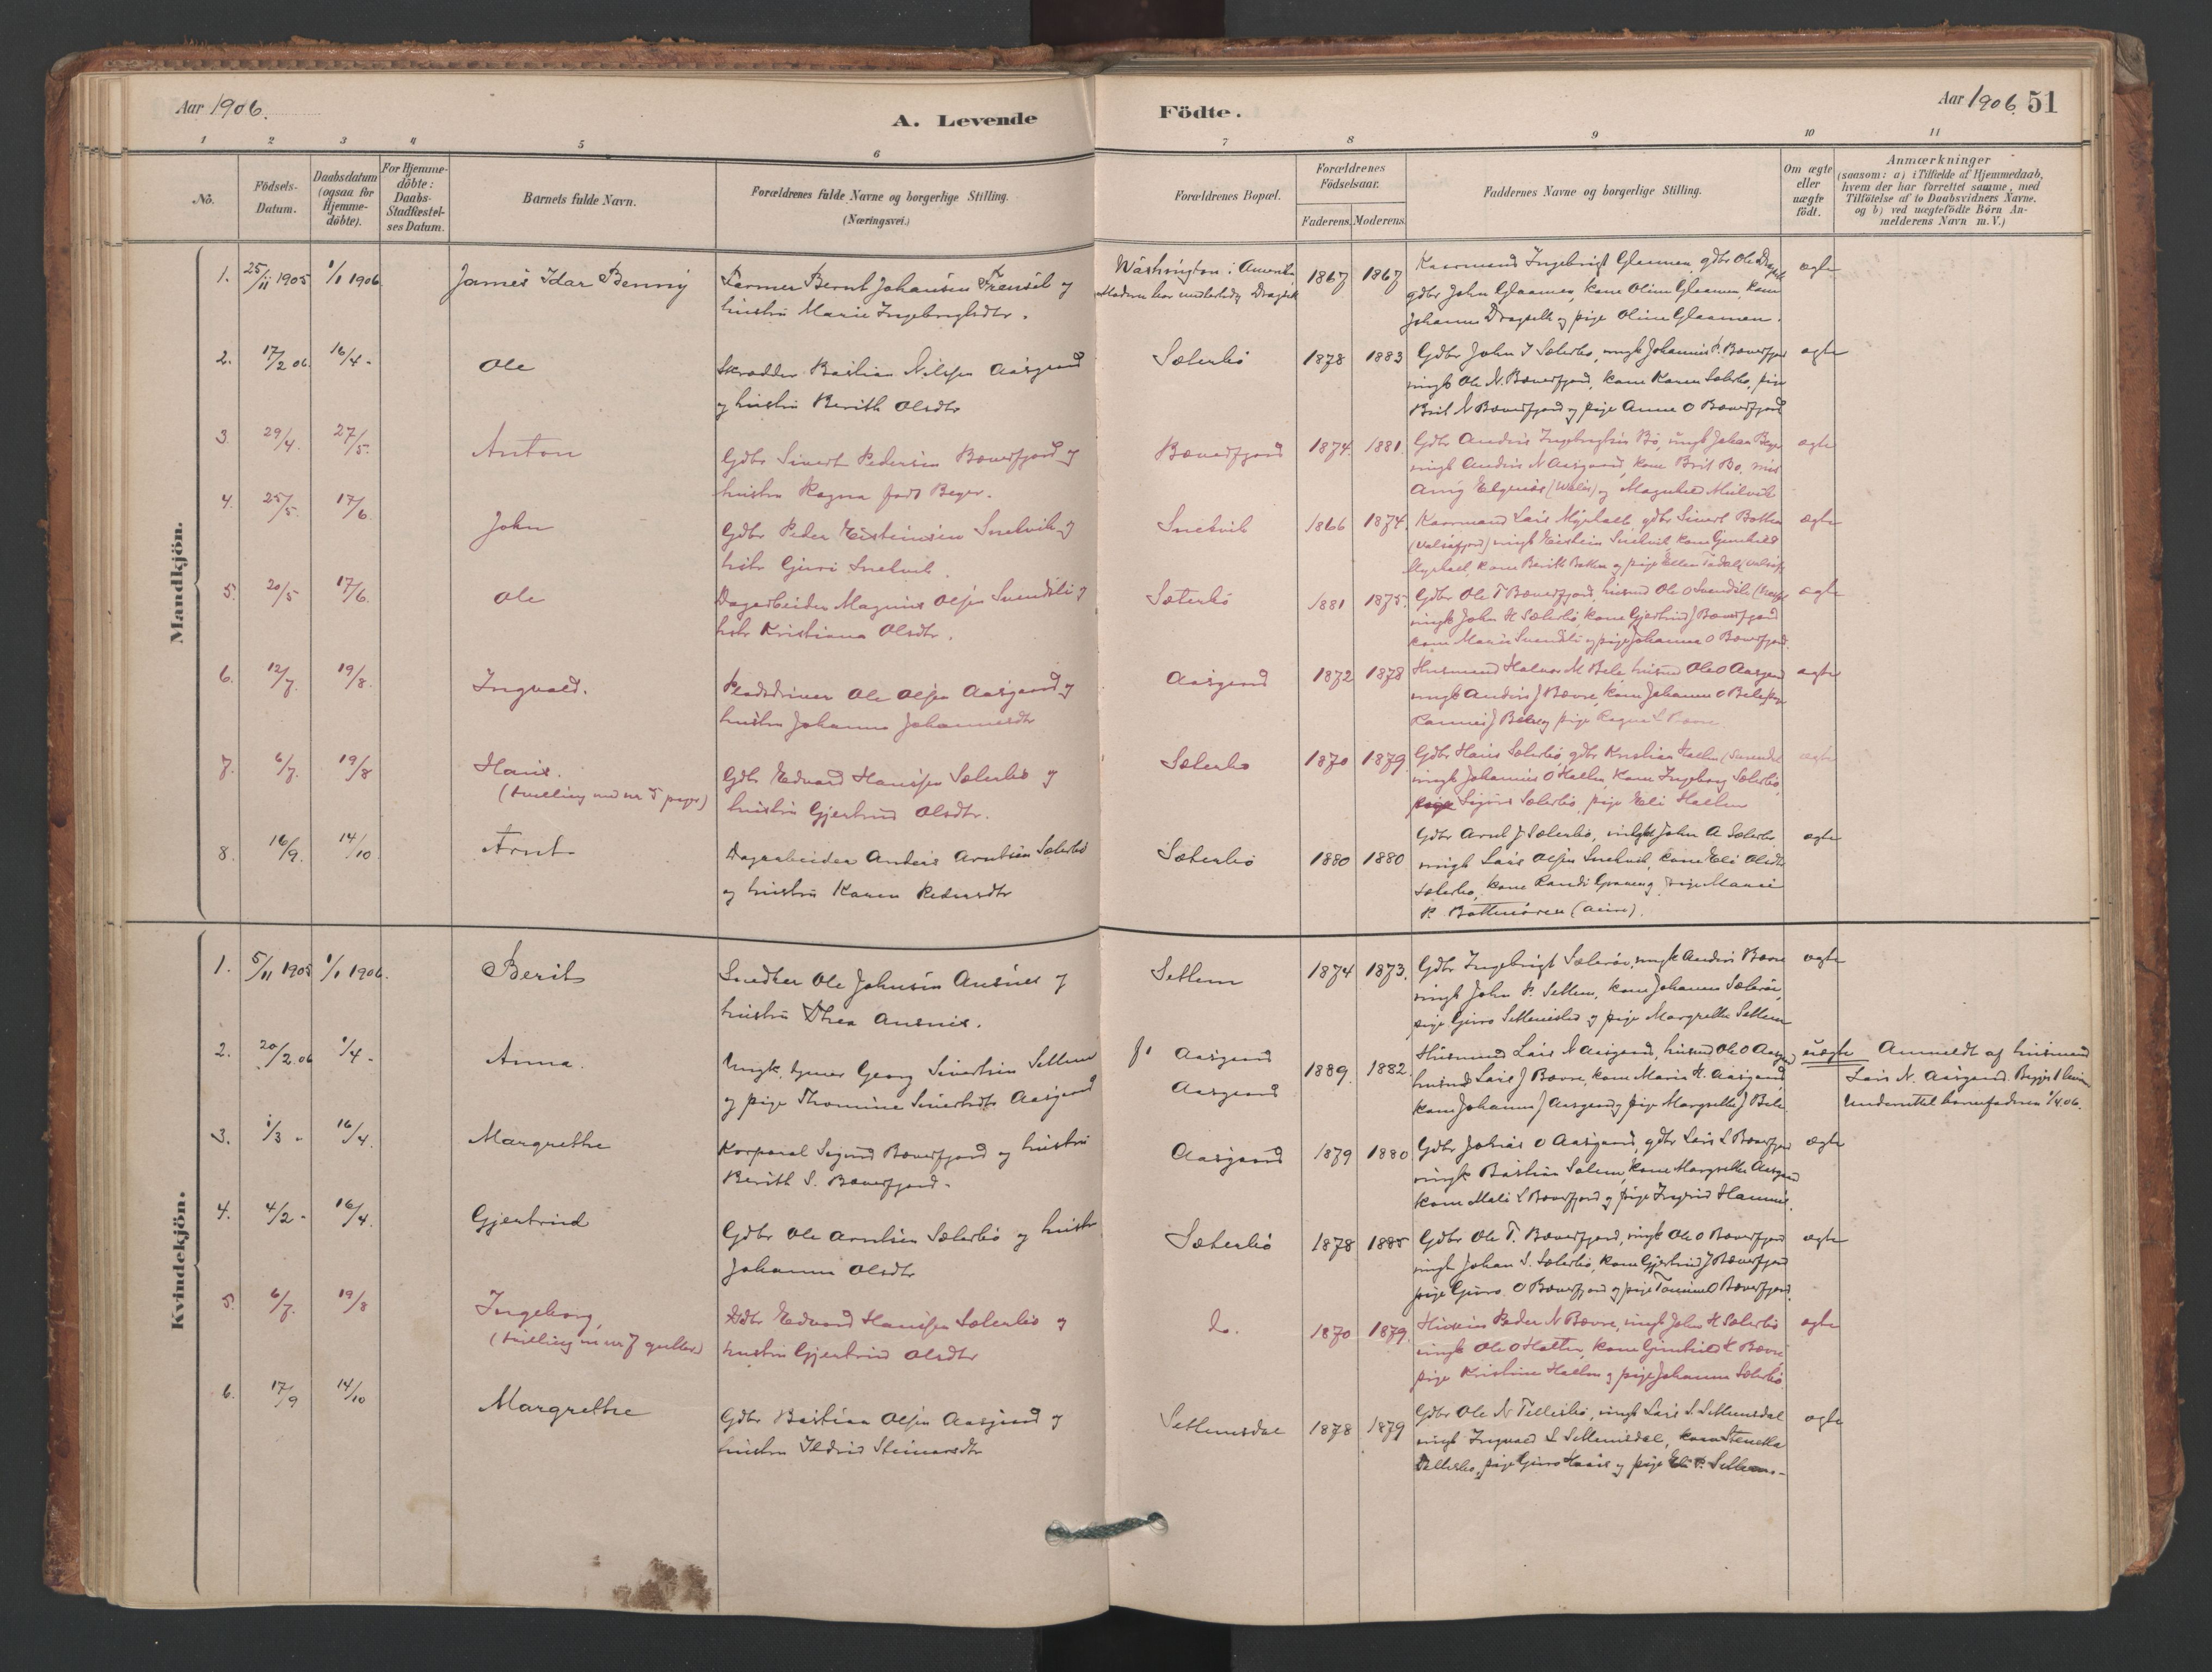 Aar 1906.
A. Levende
Födte.
Aar 1906. 51
1 2 3 4 5 6 7 8 9 10 11
No.
Födsels-
Datum.
Daabsdatum
(ogsaa for
Hjemme-
döbte).
For Hjemme-
döbte:
Daabs-
Stadfæstel-
ses Datum.
Barnets fulde Navn.
Forældrenes fulde Navne og borgerlige Stilling.
(Næringsvei.)
Forældrenes Bopæl.
Forældrenes
Födselsaar.
Faderens. Moderens.
Faddernes Navne og borgerlige Stilling.
Om ægte
eller
uægte
födt.
Anmærkninger
(saasom: a) i Tilfælde af Hjemmedaab,
hvem der har forrettet samme, med
Tilföielse af to Daabsvidners Navne,
og b) ved uægtefödte Börn An-
melderens Navn m. V.)
Mandkjön.
1. 25/11 1905 1/1 1906 James Idar Benny
Farmer Bernt Johansen og
hustru Marie Ingebrigtsdtr.
Washington i Amerika
1867 1867
Kaarmand Ingebrigt Glaamen, gdbr Ole
gdbr John Glaamen, kone Oline Glaamen, kone
Johanne og pige Oline Glaamen.
ægte
2. 17/2 06. 16/4 - Ole
Skrædder Bastian Nilsen Aasgaard
og hustru Berith Olsdtr
Sæterbö 1878 1883
Gdbr John J Sæterbö, ungk Johannes P. Bæverfjord
ungk Ole N. Bæverfjord, kone Karen Sæterbö, pige
Brit N Bæverfjord og pige Anne O Bæverfjord
ægte
3. 29/4. 27/5. Anton
Gdbr Sivert Pedersen Bæverfjord og
hustru Ragna född Beyer.
Bæverfjord 1874. 1881.
Gdbr Anders Ingebrigtsen Bö, ungk Johan Beyer
ungk Anders N Aasgaard, kone Brit Bö,
og Magnhild
ægte
4. 25/5. 17/6. John
Gdbr Peder Eisteinsen Snekvik og
hstr Guri Snekvik.
Snekvik 1866 1874.
Kaarmand Lars gdbr Sivert Botten
(Valsöfjord) ungk Eistein Snekvik kone Gunhild
kone Berith Botten og pige Ellen
ægte
5. 20/5 17/6. Ole
Dagarbeider Magnus Olsen Svendsli og
hstr Kristiana Olsdtr.
Sæterbö 1881 1875.
Gdbr Ole T Bæverfjord, husmd Ole O Svendsli
ungk John H Sæterbö, kone Gjertrud J Bæverfjord
kone Marie Svendsli og pige Johanna O Bæverfjord.
ægte
6. 12/7. 19/8. Ingvald.
Pladsdriver Ole Olsen Aasgaard og
hustru Johanna Johannesdtr
Aasgaard 1872 1878
Husmand Halvor M Bele husmd Ole O Aasgaard
ungk Anders J Bævre, kone Johanna O Bele, pige
J Bele og pige Ragna L Bævre
ægte
7. 6/7. 19/8 Hans.
(tvilling med nr 5 piger)
Gdbr Edvard Hansen Sæterbö og
hustru Gjertrud Olsdtr.
Sæterbö 1870 1879.
Gdbr Hans Sæterbö, gdbr Kristian Hallen (Surendal
ungk Johannes O Hallen, kone Ingeborg Sæterbö,
pige Sigrid Sæterbö, pige Eli Hallen
ægte
8. 16/9. 14/10 Arnt
Dagarbeider Anders Arntsen Sæterbö
og hustru Karen Pedersdtr
Sæterbö 1880 1880
Gdbr Arnt J Sæterbö, ungk John A Sæterbö
ungk Lars Olsen Snekvik, kone Eli Olsdtr
Sæterbö, kone Randi og pige Marie
P.
ægte
Kvindekjön.
1. 5/11 1905 1/1 1906. Berit
Snedker Ole Johnsen Ansnes og
hustru Thea Ansnes.
Settem 1874 1873.
Gdbr Ingebrigt Sæterö, ungk Anders Bævre
ungk John P. Settem, kone Johanna Sæterö,
pige Guro og pige Margrethe Settem
ægte
2. 20/2 06 1/4 - Anna.
Ungk. Georg Sivertsen Settem
og pige Thomine Sivertsdtr Aasgaard
Aasgaard
Aasgaard
1889. 1882.
Husmand Lars N Aasgaard, husmd Ole O Aasgaard
husmd Lars J Bævre, kone Marie H. Aasgaard
kone Johanne J Aasgaard og pige Margrethe J Bele.
uægte
Anmeldt af husmand
Lars N. Aasgaard. Begges 1 leiersm.
Underrettet barnefaderen 1/4 06.
3. 1/3 - 16/4. Margrethe
Korporal Sigurd Bæverfjord og hustru
Berith S. Bæverfjord.
Aasgaard 1879 1880
Gdbr Johan O Aasgaard, gdbr Lars L Bæverfjord
ungk Bastian Salem, kone Margrethe Aasgaard
kone Mali L Bæverfjord og pige Ingrid Hammes.
ægte
4. 4/2 - 16/4. Gjertrud
Gdbr Ole Arntsen Sæterbö og hustr
Johanna Olsdtr
Sæterbö 1878 1885
Gdbr Ole T. Bæverfjord, ungk Ole O Bæverfjord
ungk Johan S. Sæterbö, kone Gjertrud J Bæverfjord
pige Guro O Bæverfjord og pige O Bæverfjord.
ægte
5. 6/7. 19/8 Ingeborg,
(tvilling m nr 7 gutter)
Gdbr Edvard Hansen Sæterbö og
hustru Gjertrud Olsdtr
Do. 1870 1879.
Peder N Bævre, ungk John H Sæterbö
ungk Ole O Hallen, kone Gunhild K Bævre,
pige Kristine Hallen og pige Johanna Sæterbö.
ægte
6. 17/9 14/10 Margrethe
Gdbr Bastian Olsen Aasgaard og
hustru Ildrid Steinarsdtr
Settemsdal 1878 1879
Gdbr Ole N Tellesbö, ungk Lars S. Settemsdal
ungk Ingvald L Settemsdal, kone
Tellesbö, pige Guro og pige Eli P. Settem.-
ægte